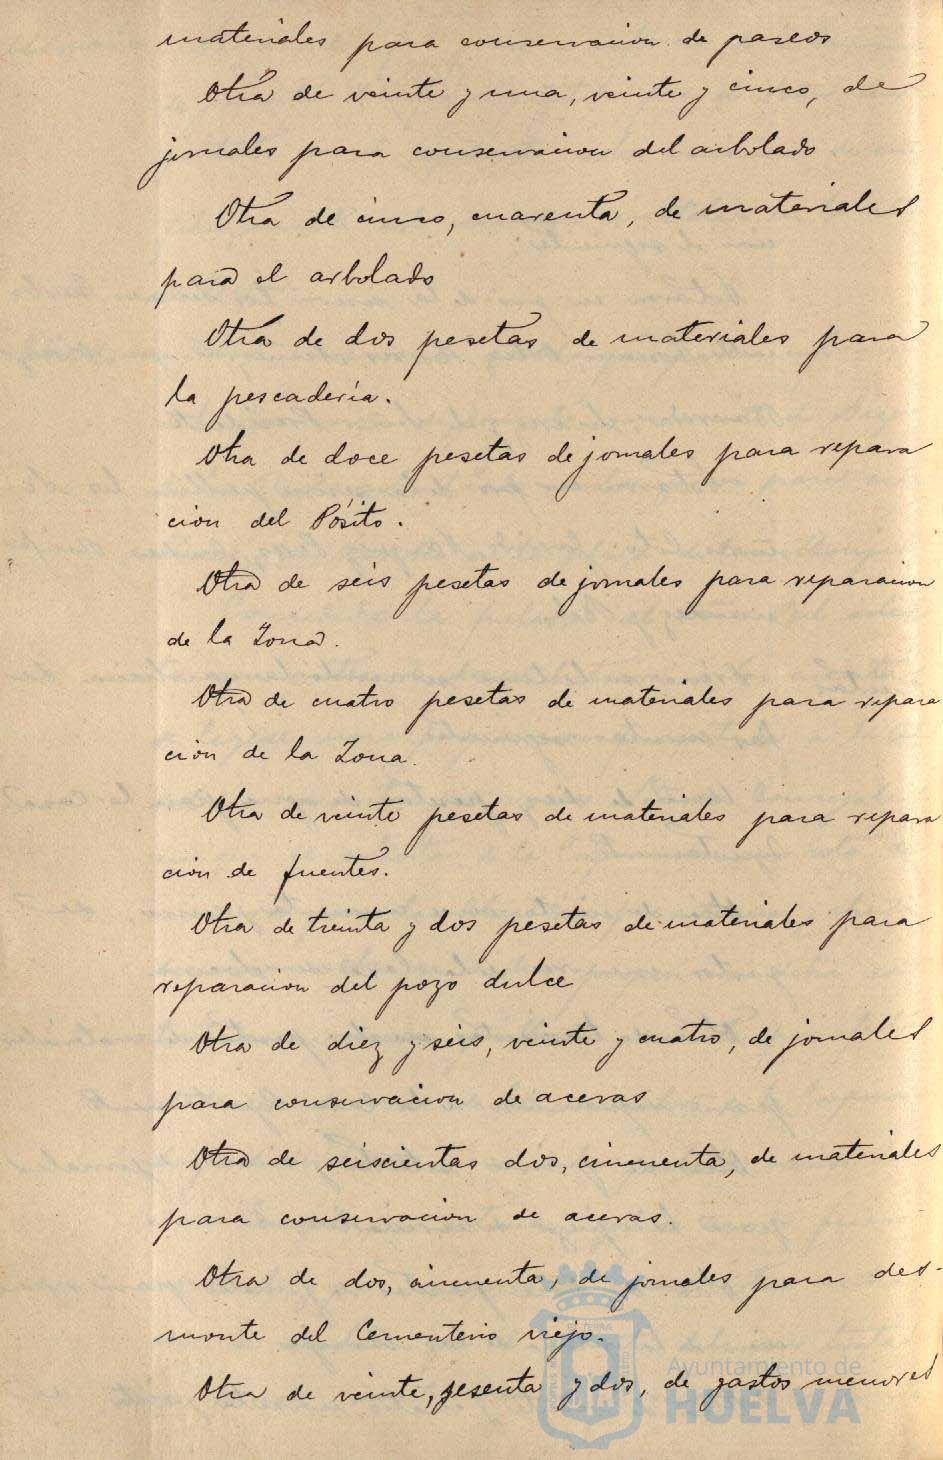 materiales para conservacion de paseos
Otra de veinte y una, veinte y cinco, de
jornales para conservacion del arbolado
Otra de cinco, cuarenta, de materiales
para el arbolado
Otra de dos pesetas de materiales para
la pescadería.
Otra de doce pesetas de jornales para repara
ción del Pósito.
Otra de seis pesetas de jornales para reparacion
de la Zona.
Otra de cuatro pesetas de materiales para repara
ción de la Zona.
Otra de veinte pesetas de materiales para repara
ción de fuentes.
Otra de treinta y dos pesetas de materiales para
reparacion del pozo dulce
Otra de diez y seis, veinte y cuatro, de jornales
para conservacion de aceras
Otra de seiscientas dos, cincuenta, de materiales
para conservacion de aceras.
Otra de dos, cincuenta, de jornales para des-
monte del Cementerio viejo.
Otra de veinte, sesenta y dos, de gastos menores
Ayuntamiento de
HUELVA